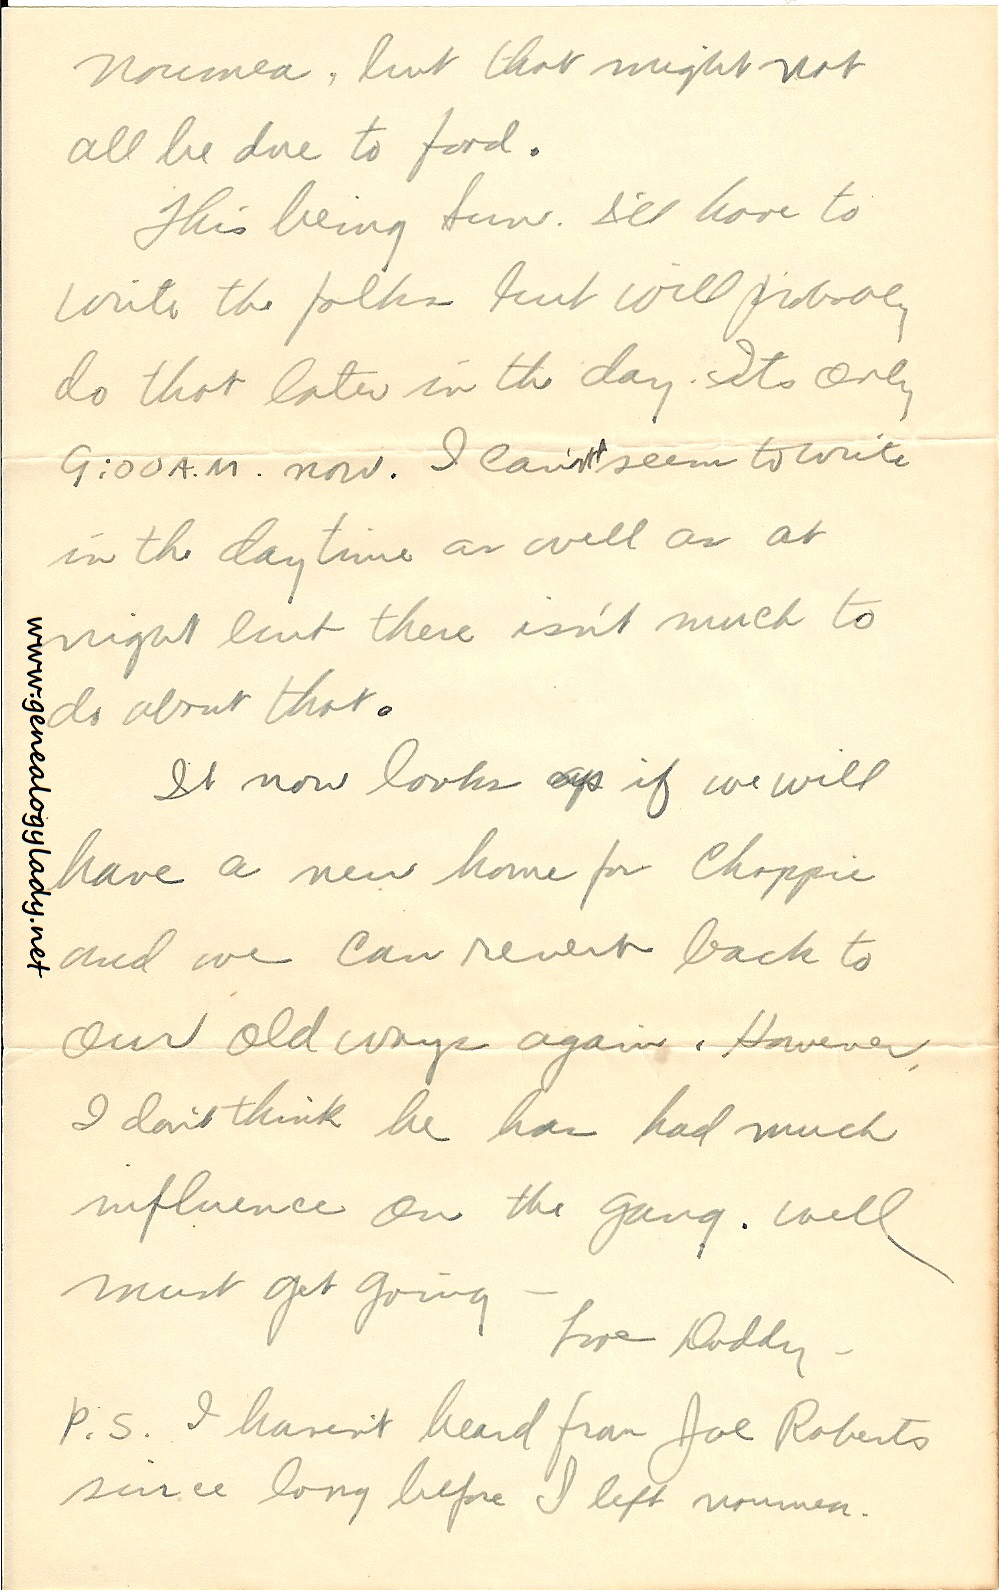 Noumea, but that might not
all be due to food.
This being Sun. I'll have to
write the folks but will probably
do that later in the day. Its only
9:00 A.M. now. I can't seem to write
in the daytime as well as at
night but there isn't much to
do about that.
It now looks as if we will
have a new home for Chappie
and we can revert back to
our old ways again. However,
I don't think he has had much
influence on the gang. Well
must get going –
Love Daddy –
P.S. I haven't heard from Joe Roberts
since long before I left Noumea.
www.genealogylady.net